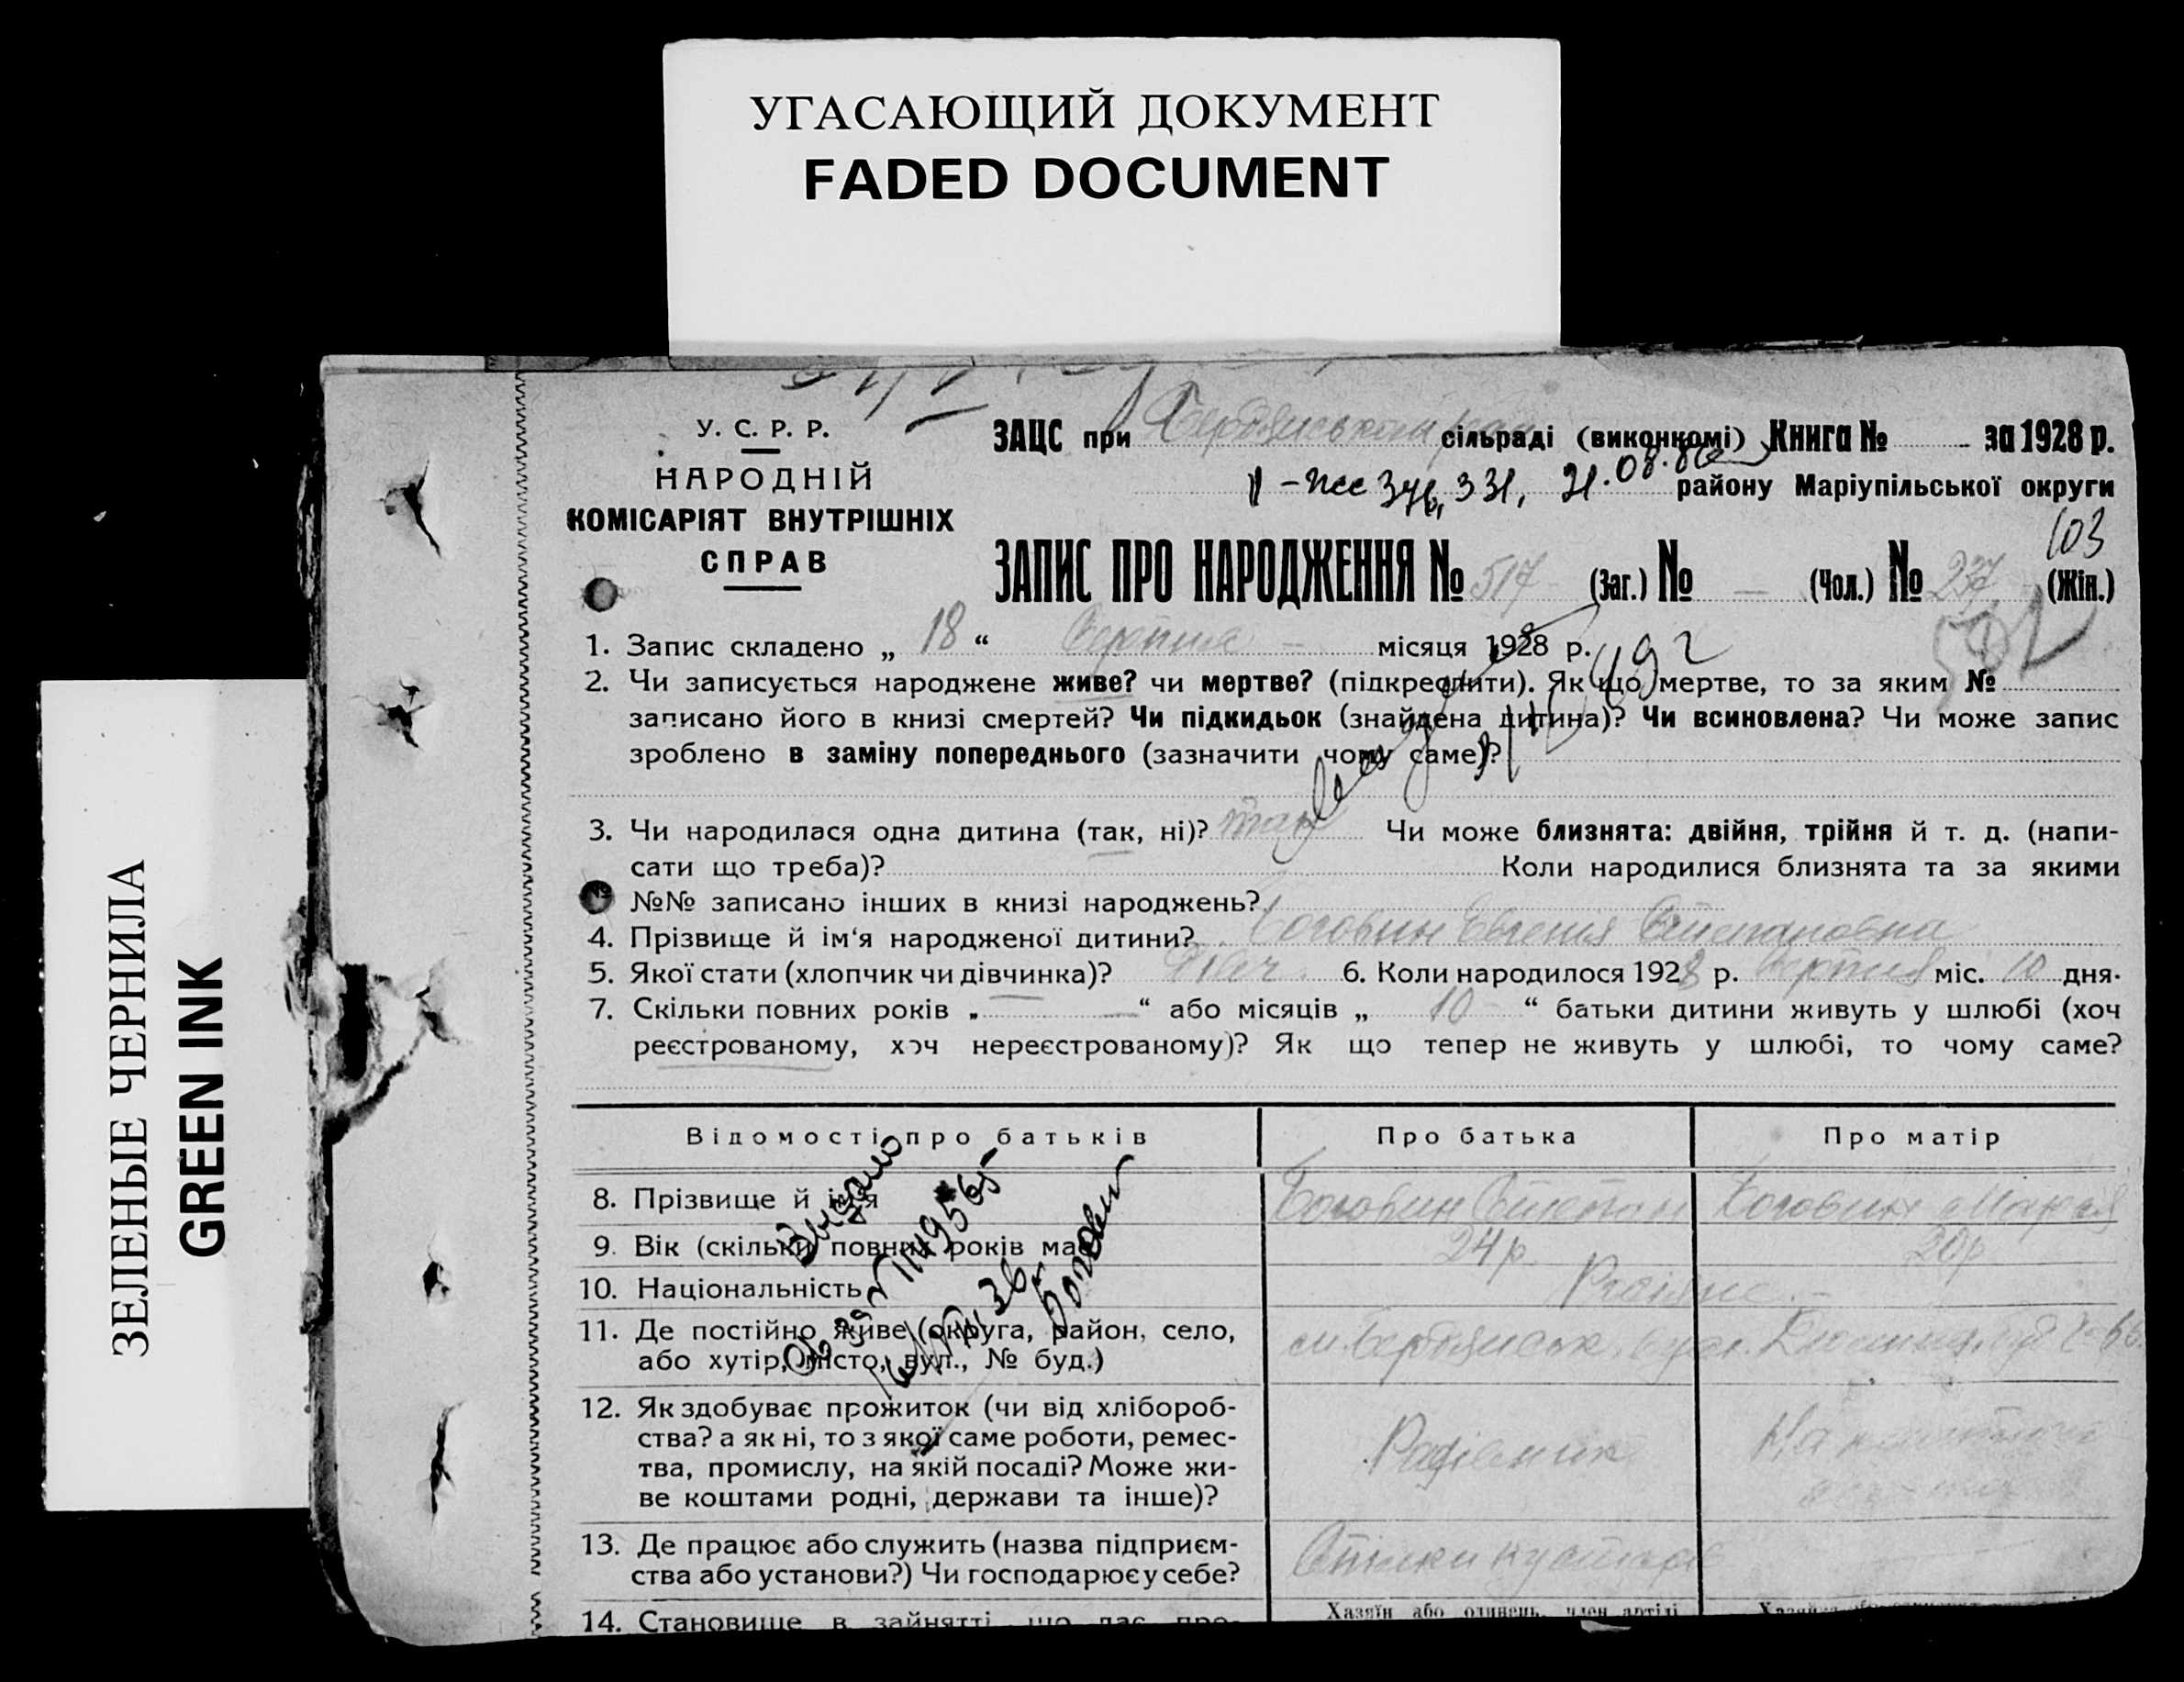 УГАСАЮЩИЙ ДОКУМЕНТ
FADED DOCUMENT
ЗЕЛЕНЫЕ ЧЕРНИЛА
GREEN INK
У. С. Р. Р.
НАРОДНІЙ
КОМІСАРІЯТ ВНУТРІШНІХ
СПРАВ
ЗАЦС при сільраді (виконкомі) Книга № за 1928 р.
331, 21.08. району Маріупільської округи
103
ЗАПИС ПРО НАРОДЖЕННЯ № 517 (Заг.) № — (Чол.) № 237 (Жін.)
502
1. Запис складено „ 18 “ Серпня місяця 1928 р.
2. Чи записується народжене живе? чи мертве? (підкреслити). Як що мертве, то за яким №
записано його в книзі смертей? Чи підкидьок (знайдена дитина)? Чи всиновлена? Чи може запис
зроблено в заміну попереднього (зазначити чому саме)?
3. Чи народилася одна дитина (так, ні)? так Чи може близнята: двійня, трійня й т. д. (напи-
сати що треба)? Коли народилися близнята та за якими
№№ записано інших в книзі народжень?
4. Прізвище й ім‘я народженої дитини? Боговин Євгенія Степановна
5. Якої стати (хлопчик чи дівчинка)? Дівч. 6. Коли народилося 1928 р. Серпня міс. 10 дня.
7. Скільки повних років „ — “ або місяців „ 10 “ батьки дитини живуть у шлюбі (хоч
реєстрованому, хоч нереєстрованому)? Як що тепер не живуть у шлюбі, то чому саме?
Відомості про батьків Про батька Про матір
8. Прізвище й ім‘я Боговин Степан Боговин Марія
9. Вік (скільки повних років має) 24 р. 20 р.
10. Національність
11. Де постійно живе (округа, район, село,
або хутір, місто, вул., № буд.) м. Бердянськ
12. Як здобуває прожиток (чи від хлібороб-
ства? а як ні, то з якої саме роботи, ремес-
тва, промислу, на якій посаді? Може жи-
ве коштами родні, держави та інше)? На
13. Де працює або служить (назва підприєм-
ства або установи?) Чи господарює у себе?
14. Становище в зайнятті, що дає про-
Хазяїн або одинець, член артілі